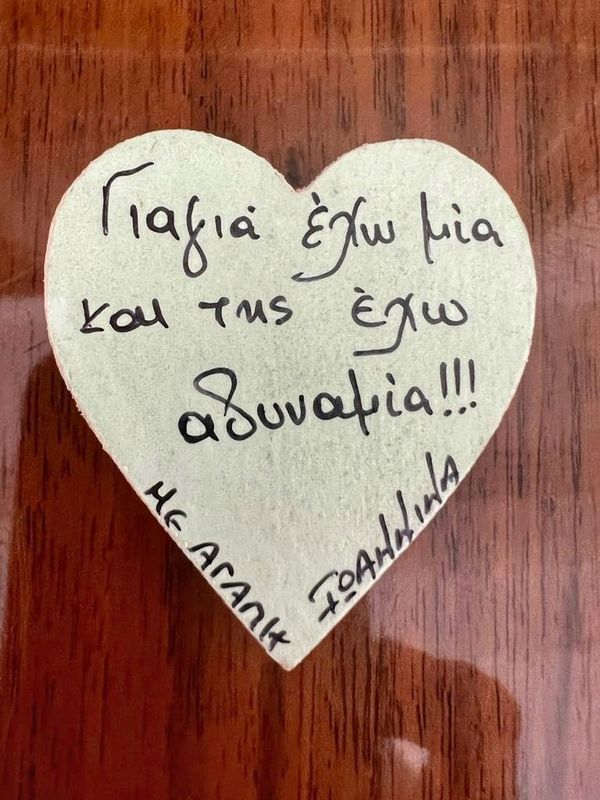 Γιαγιά έχω μία
και της έχω
αδυναμία!!!
ΜΕ ΑΓΑΠΗ
ΙΩΑΝΝΙΝΑ